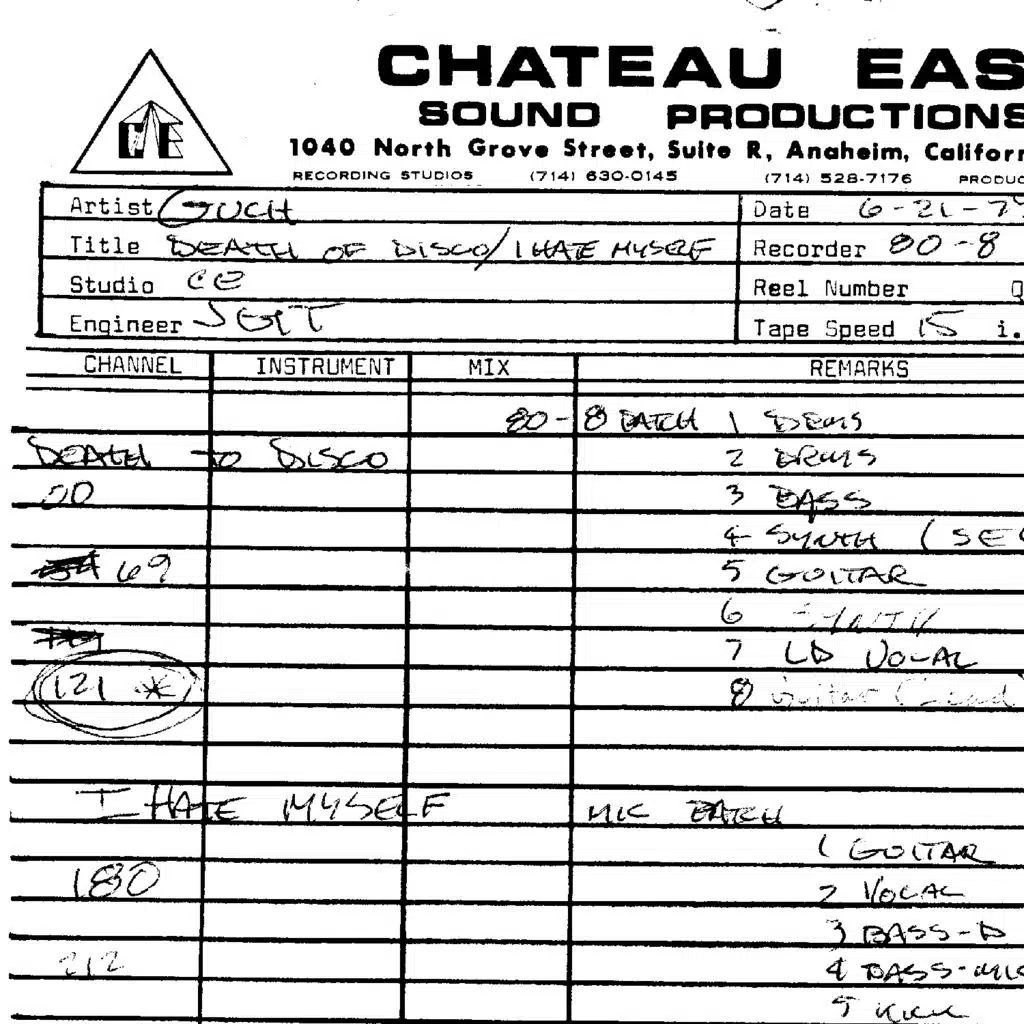 CHATEAU EAS
SOUND PRODUCTIONS
1040 North Grove Street, Suite R, Anaheim, Califor
RECORDING STUDIOS (714) 630-0145 (714) 528-7176 PRODUC
CE
Artist GUCH Date 6-21-79
Title DEATH OF DISCO/I HATE MYSELF Recorder 80-8
Studio CE Reel Number
Engineer Tape Speed 15 i.
CHANNEL INSTRUMENT MIX REMARKS
80-8 PATCH 1 DRUMS
DEATH TO DISCO 2 DRUMS
00 3 BASS
4 SYNTH (SE
69 5 GUITAR
6 SYNTH
7 LD VOCAL
121 * 8 Guitar (Lead
I HATE MYSELF MIC PATCH
1 GUITAR
180 2 VOCAL
3 BASS-D
212 4 BASS-MIC
5 KICK